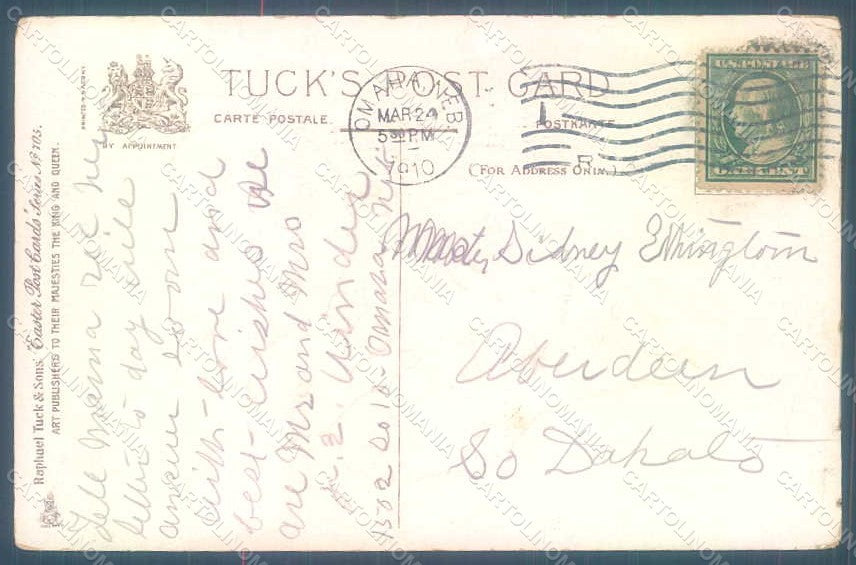 TUCK'S POST CARD
CARTE POSTALE.
POSTKARTE
(FOR ADDRESS ONLY.)
PRINTED IN SAXONY
BY APPOINTMENT
Raphael Tuck & Sons' "Easter Post Cards" Series No 705.
ART PUBLISHERS TO THEIR MAJESTIES THE KING AND QUEEN.
OMAHA, NEB
MAR 24
5 30 PM
1910
U.S. POSTAGE
ONE CENT
Master Sidney Ethington
Aberdeen
So Dakato
Tell Mama rec her
letter to day will
answer soon
with love and
best wishes we
are Mr and Mrs
1502 So 10 Omaha Neb
CARTOLINOMANIA